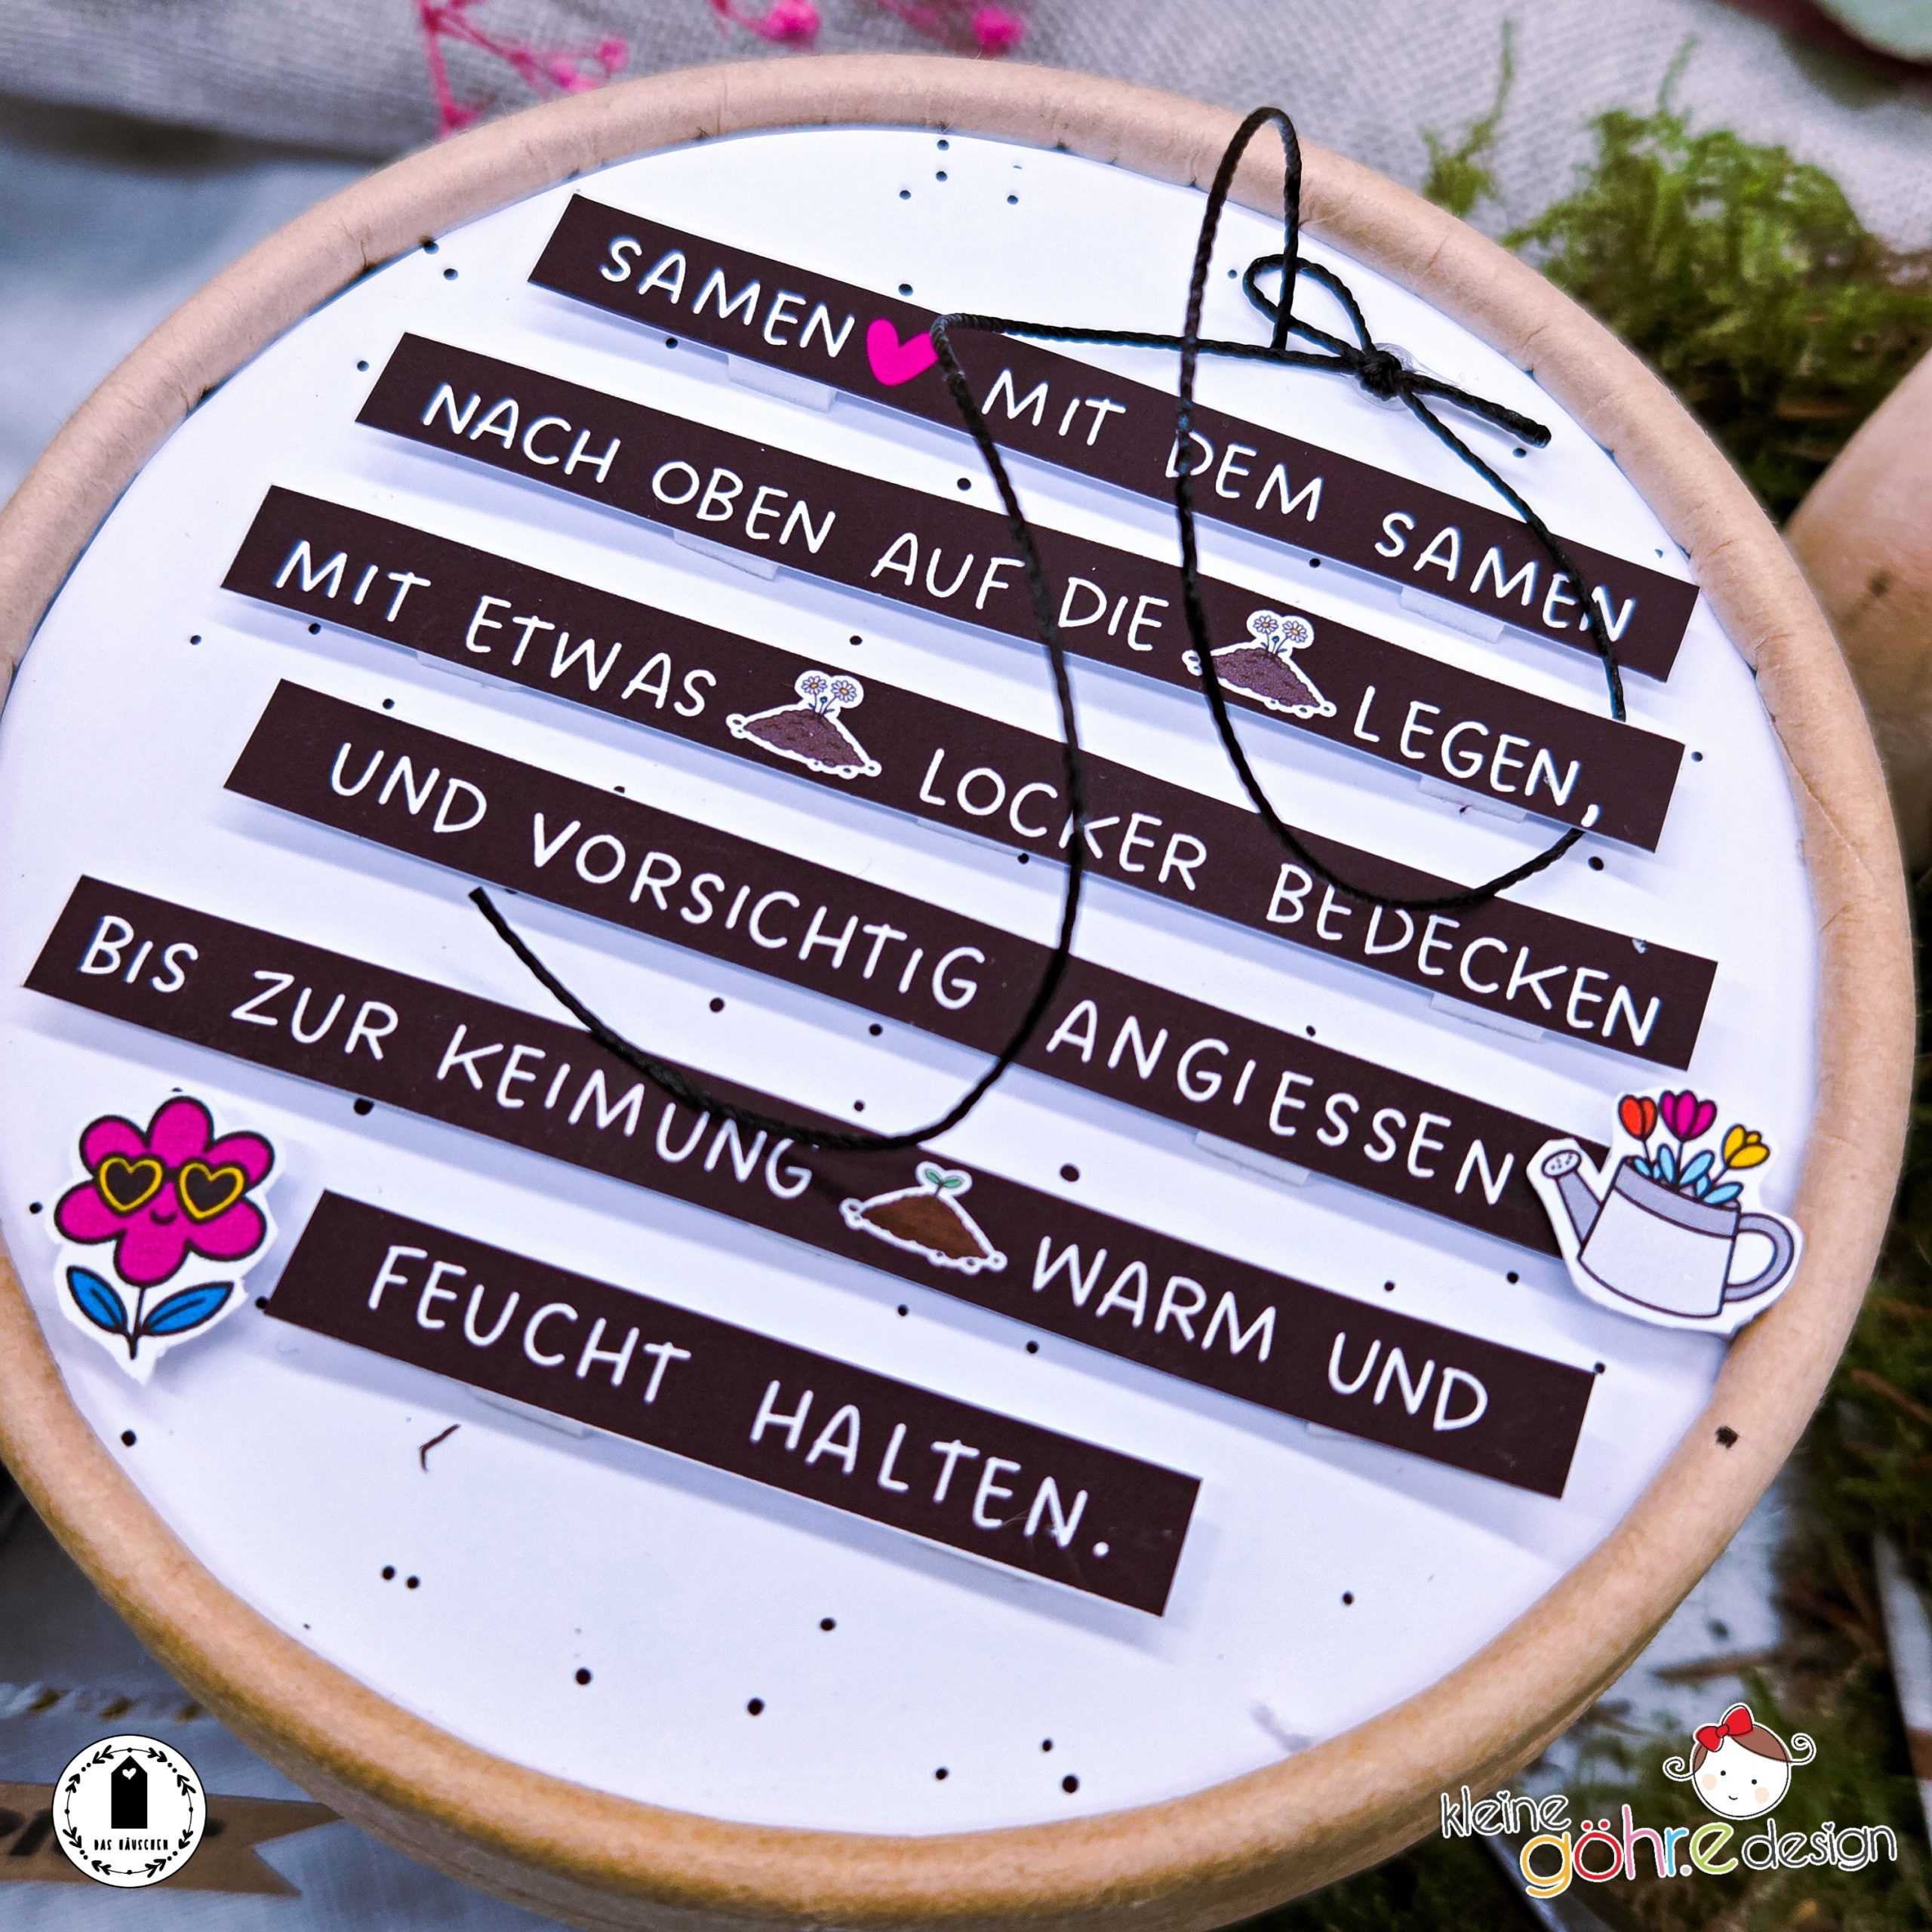 SAMEN MIT DEM SAMEN
NACH OBEN AUF DIE LEGEN,
MIT ETWAS LOCKER BEDECKEN
UND VORSICHTIG ANGIESSEN
BIS ZUR KEIMUNG WARM UND
FEUCHT HALTEN.
DAS HÄUSCHEN
kleine
göhr.e design